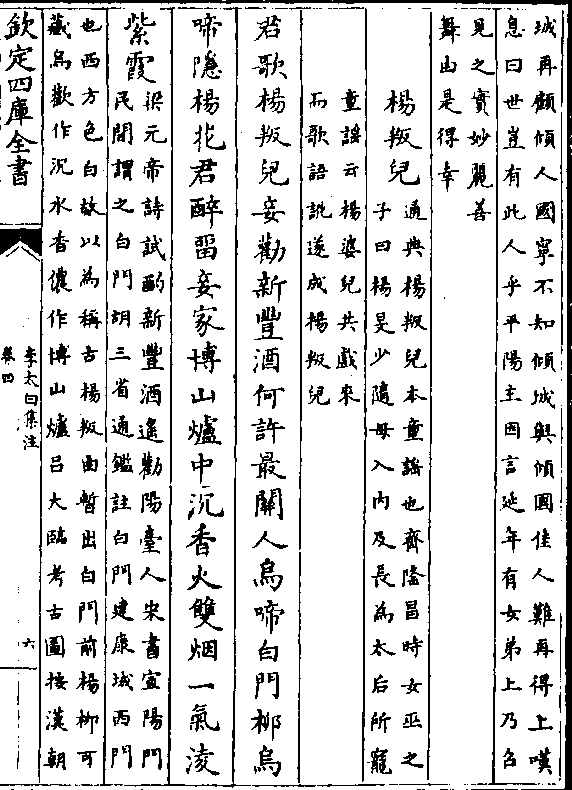 城再顧傾人國寧不知傾城與傾國佳人難再得上嘆
息曰世豈有此人乎平陽主因言延年有女弟上乃召
見之實妙麗善
舞由是得幸
楊叛兒
通典楊叛兒本童謠也齊隆昌時女巫之
子曰楊旻少隨母入内及長為太后所寵
童謠云楊婆兒共戲來
而歌語訛遂成楊叛兒
君歌楊叛兒妾勸新豐酒何許最關人烏啼白門柳烏
啼隱楊花君醉留妾家博山爐中沉香火雙烟一氣淩
紫霞
梁元帝詩試酌新豐酒遙勸陽臺人宋書宣陽門
民間謂之白門胡三省通鑑註白門建康城西門
也西方色白故以為稱古楊叛曲暫出白門前楊柳可
藏烏歡作沉水香儂作博山爐吕大臨考古圖按漢朝
欽定四庫全書
李太白集注
卷四
六